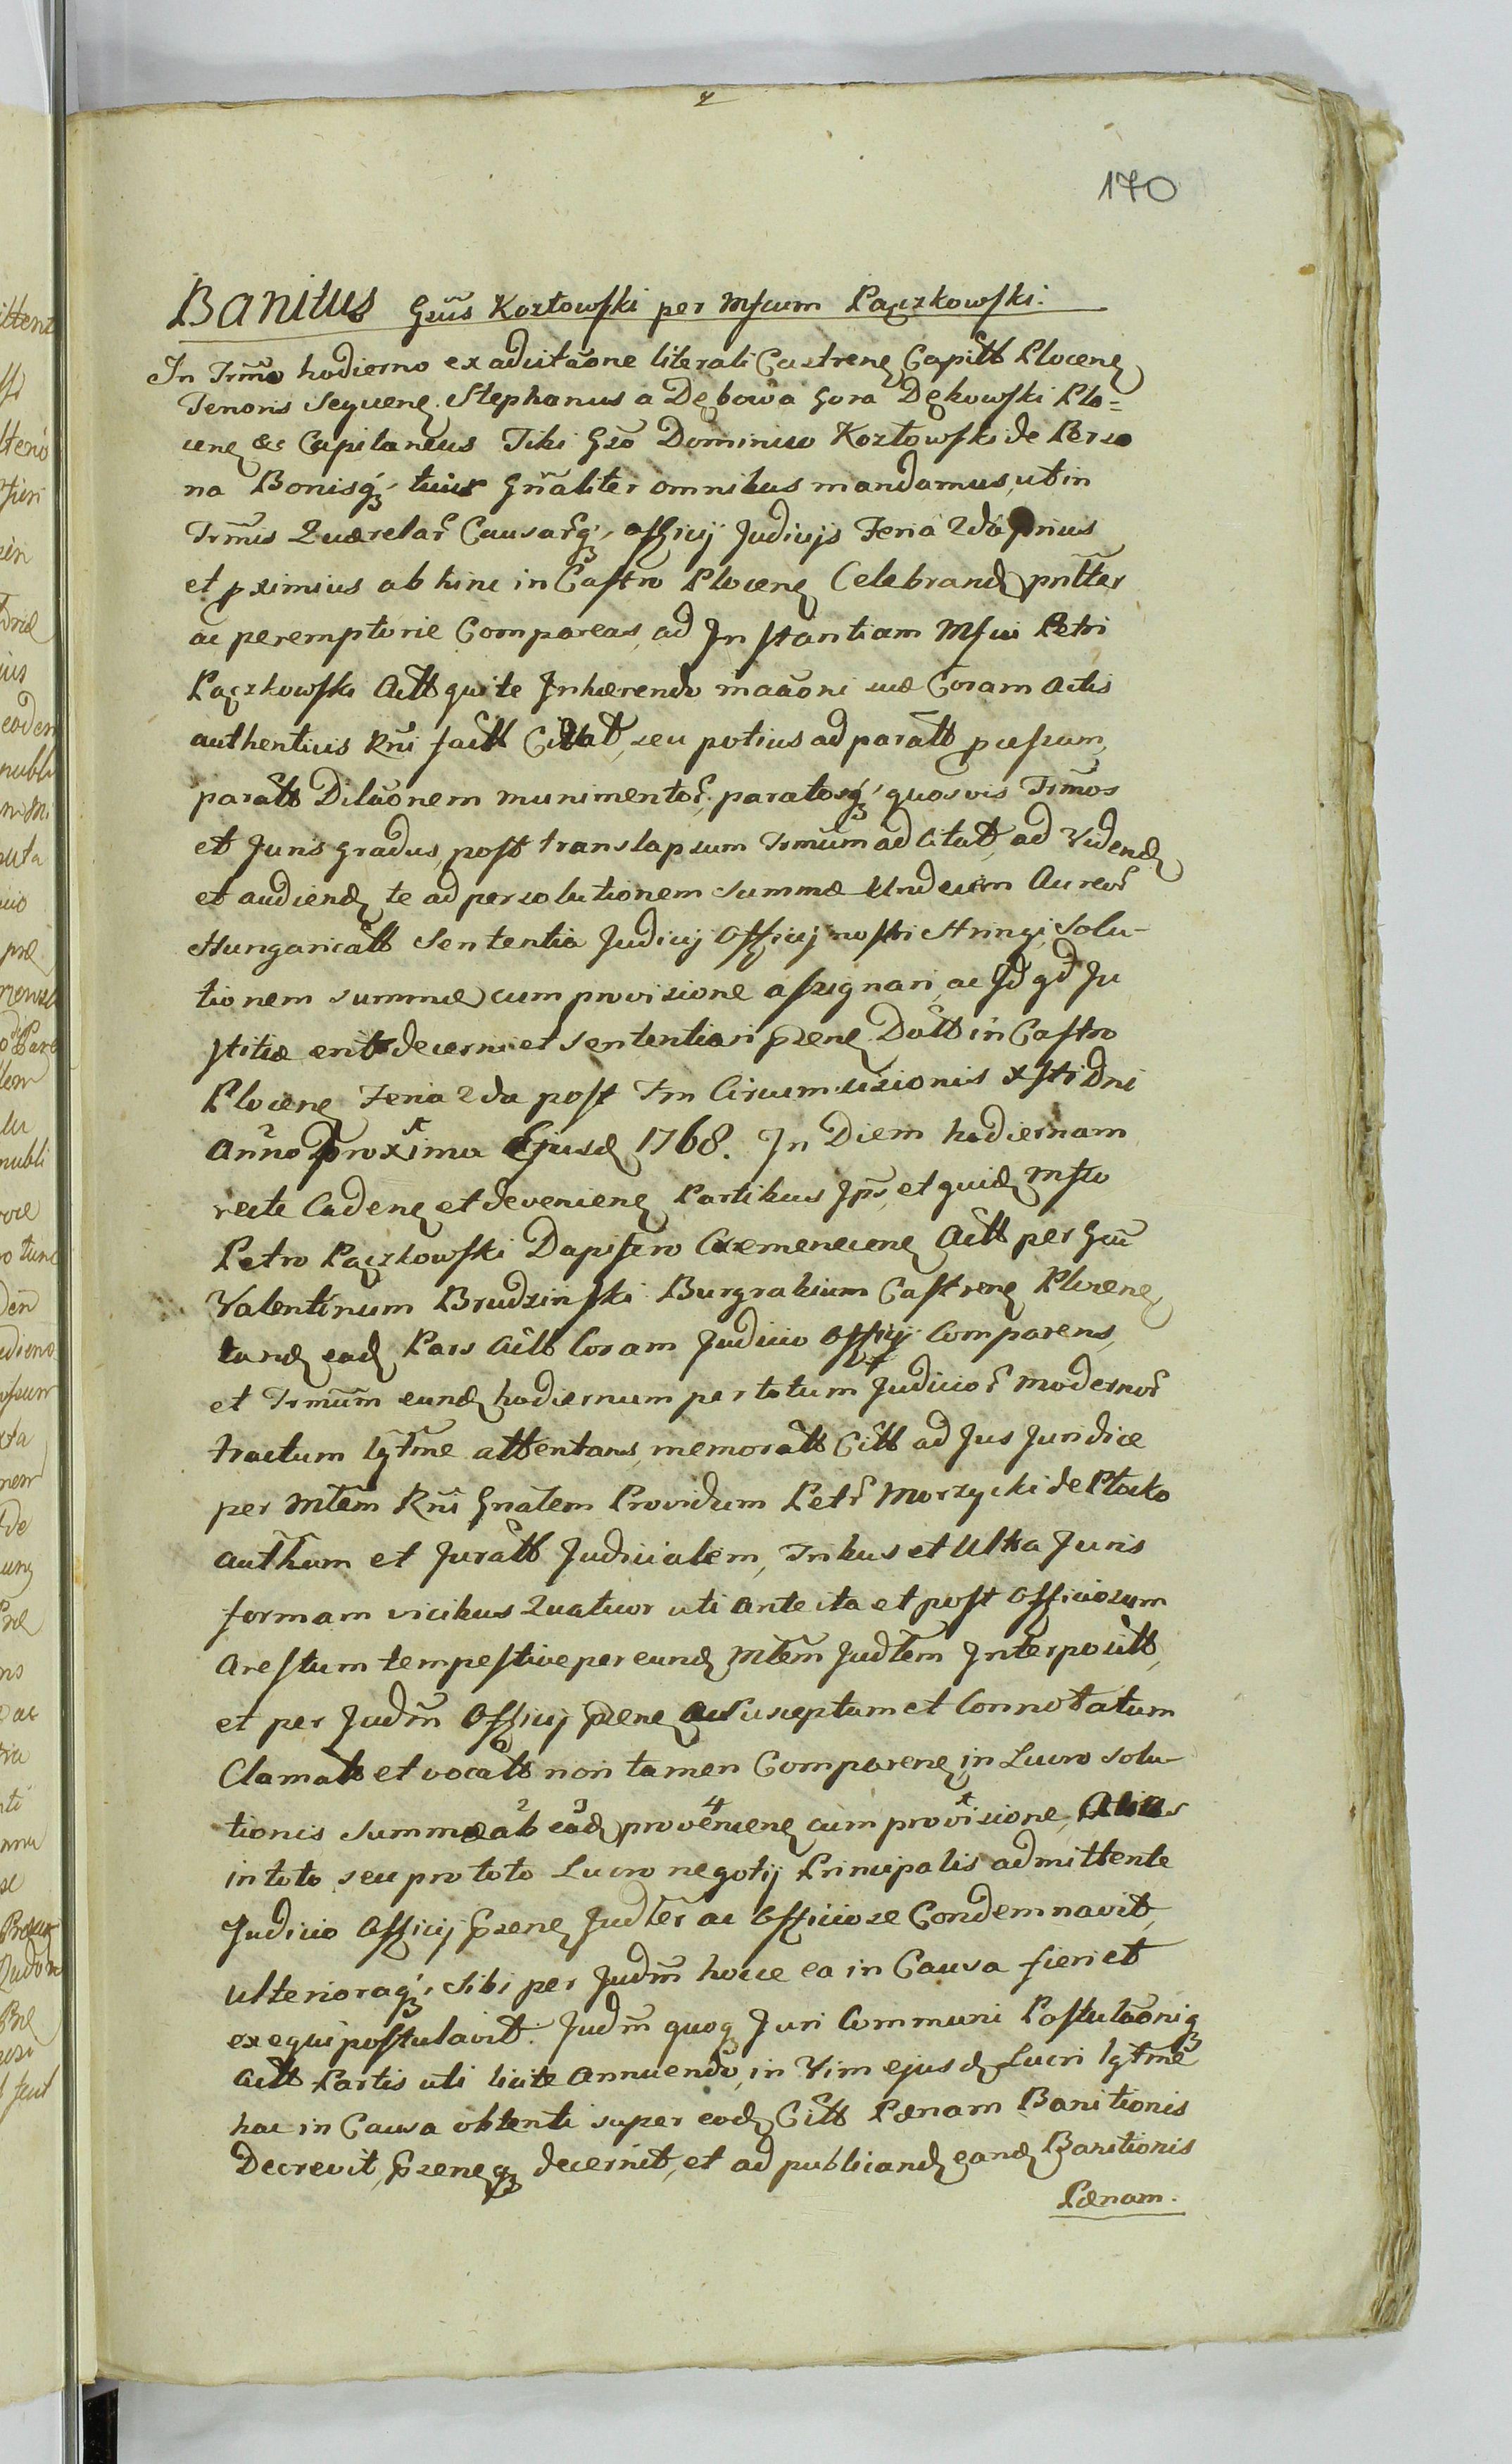 170
Banitus Gsūs Kozłowski per Mfcum Pączkowski.
In Trm̄o hodierno ex adcitāone literali Castrenꝫ Capitt Plocenꝫ
Tenoris Sequenꝫ. Stephanus a Dębowa Gora Dękowski Plo=
cenꝫ &c Capitaneus Tibi Gso Dominico Kozłowski de Perso
na Bonisqꝫ, tuis Gn̄aliter omnibus mandamus, ut in
Trm̄is Quærelar̄ Causar̄qꝫ, officij Judicijs Feria 2da prius
et pximius ab hinc in Castro Plocenꝫ Celebrandꝫ pnt̄ter
ac peremptorie Compareas, ad Instantiam Mfici Petri
Pączkowski Actt qui te Inhærendo māoni suæ Coram Actis
authenticis Rn̄i factt Citat, seu potius ad paratt pcessum,
paratt Dilāonem munimentor̄, paratosqꝫ, quosvis Trm̄os
et Juris gradus, post translapsum Trm̄um ad citat, ad Videndꝫ
et audiendꝫ te ad persolutionem Summæ Undecim Aureor̄
Hungaricatt Sententia Judicij Officij nostri Stringi, Solu-
tionem summæ cum provisione assignari, ac Id qd Ju
stitiæ erit decerni et Sententiari psenꝫ Datt in Castro
Plocenꝫ Feria 2da post Fm Circumcisionis Xsti Dni
Anno Proxima Ejusdꝫ 1768. In Diem hodiernam
recte Cadenꝫ et devenienꝫ Partibus Ips, et quidꝫ Mfco
Petro Pączkowski Dapifero Cremenecenꝫ Actt per Gsū
Valentinum Brudziński Burgrabium Castrenꝫ Plocenꝫ,
tandꝫ eadꝫ Pars Actt Coram Judicio Officij Comparens,
et Trm̄um eundꝫ hodiernum per totum Judicior̄ modernor̄
tractum lgt̄me attentans, memoratt Citt ad Jus Juridice
per Mt̄em Rn̄i Gnalem Providum Petr̄ Morzycki de Płocko
authum et Juratt Judicialem, Tribus et Ultra Juris
formam vicibus Quatuor uti ante ita et post Officiosum
Arestum tempestive per eundꝫ Mt̄em Judt̄em Interpositt,
et per Judm̄ Officij psenꝫ Susceptum et Connotatum
Clamatt et vocatt non tamen Comparenꝫ, in Lucro Solu-
tionis Summæ ab eadꝫ provenienꝫ cum provisione, Alias
in toto, seu pro toto Lucro negotij Principalis admittente
Judicio Officij psenꝫ Judt̄er ac Officiose Condemnavit,
Ulterioraqꝫ, Sibi per Judm̄ hocce ea in Causa fieri et
exequi postulavit. Judm̄ quoqꝫ Juri Communi Postulāoniqꝫ
Actt Partis uti licite Annuendo, in Vim ejusdꝫ Lucri lgt̄me
hac in Causa obtenti super eodꝫ Citt Pænam Banitionis
Decrevit, psenqꝫ decernit, et ad publicandꝫ eandꝫ Banitionis
Pænam.